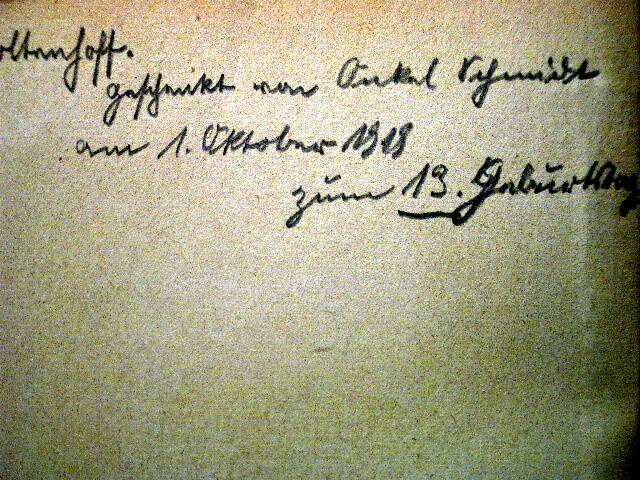 oltenhoff.
geschenkt von Onkel Schmidt
am 1. Oktober 1918
zum 13. Geburtstag